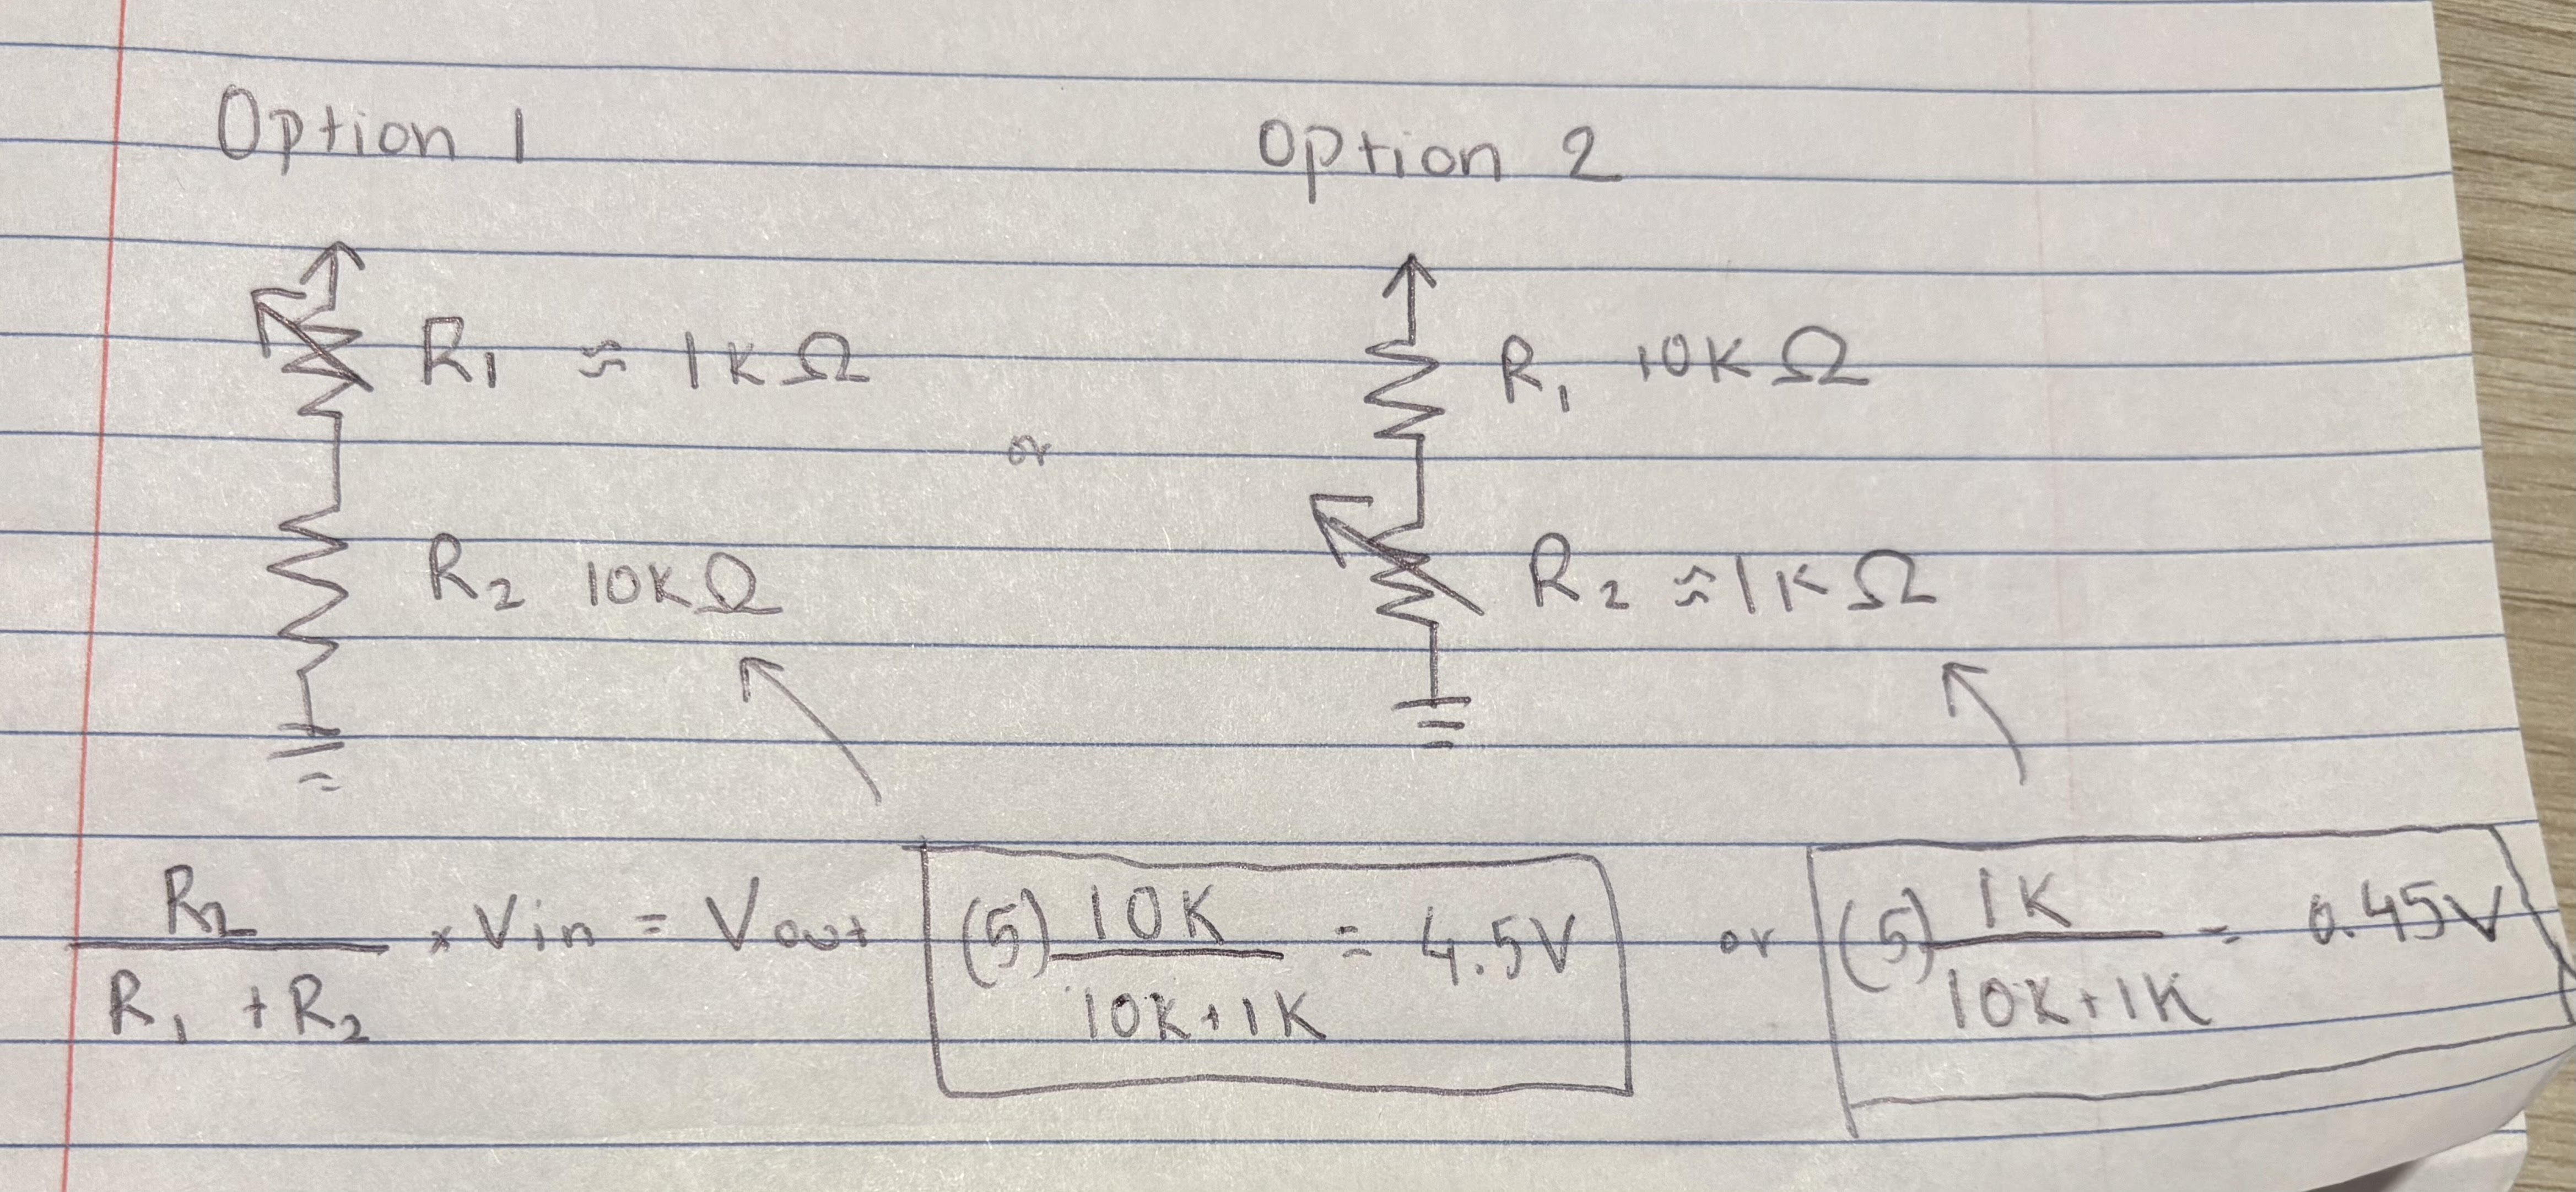 Option 1
Option 2
R₁ ≈ 1KΩ
R₂ 10KΩ
or
R₁ 10KΩ
R₂ ≈ 1KΩ
R₂ / (R₁ + R₂) × Vin = Vout
(5) 10K / (10K+1K) = 4.5V
or
(5) 1K / (10K+1K) = 0.45V